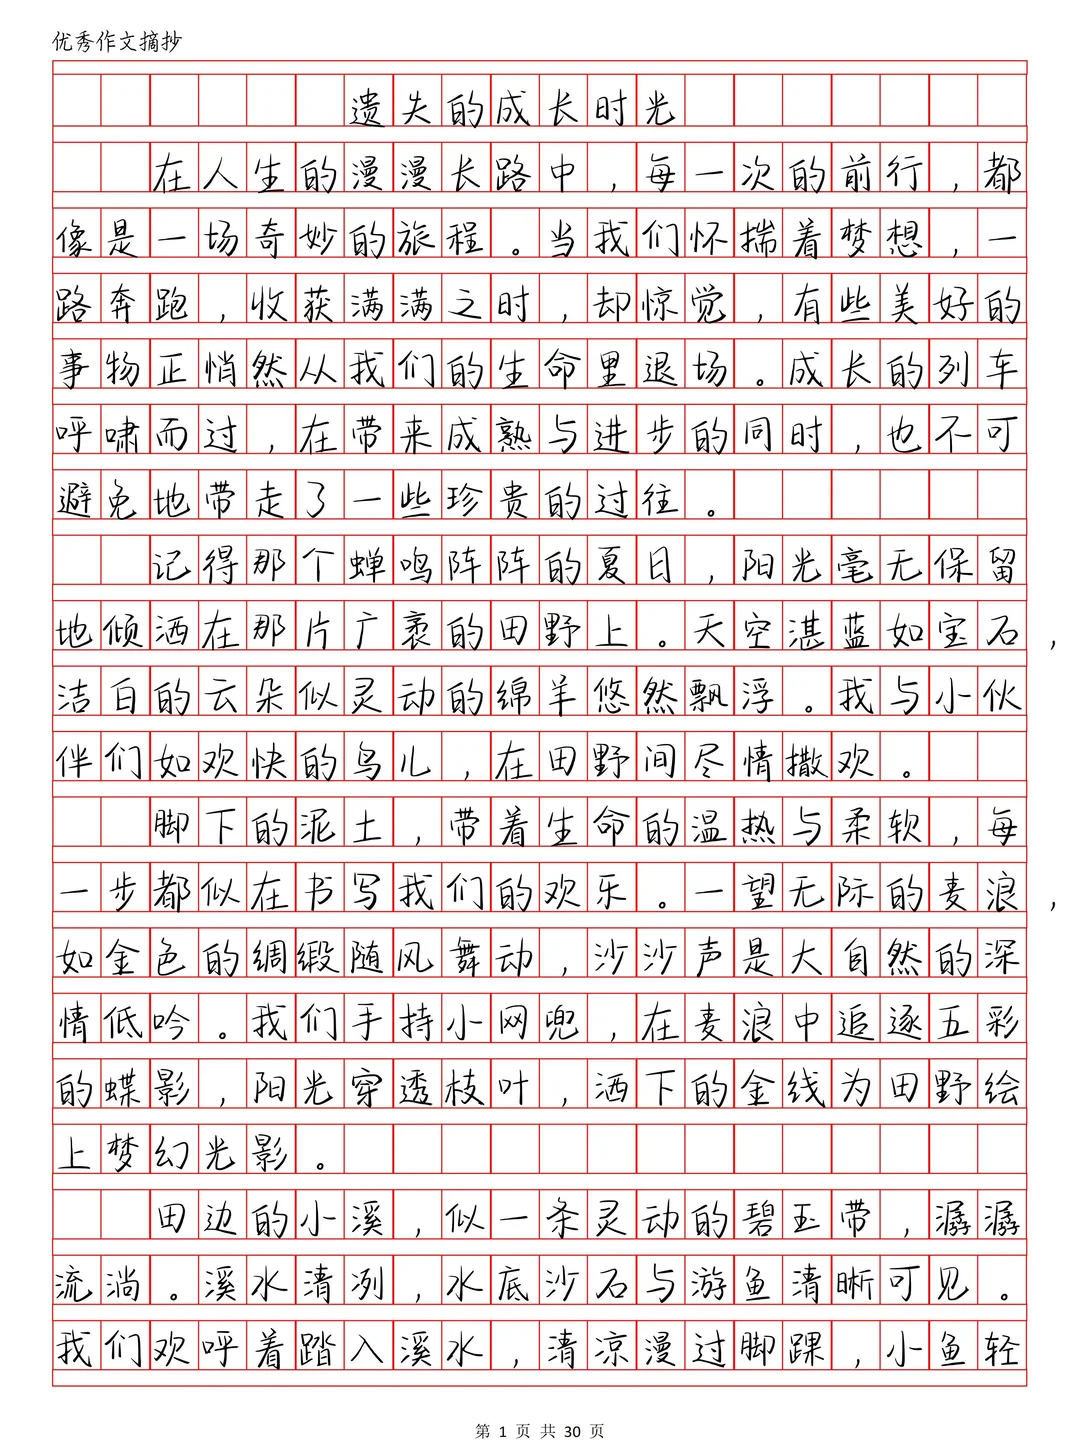 优秀作文摘抄
遗失的成长时光
在人生的漫漫长路中，每一次的前行，都
像是一场奇妙的旅程。当我们怀揣着梦想，一
路奔跑，收获满满之时，却惊觉，有些美好的
事物正悄然从我们的生命里退场。成长的列车
呼啸而过，在带来成熟与进步的同时，也不可
避免地带走了一些珍贵的过往。
记得那个蝉鸣阵阵的夏日，阳光毫无保留
地倾洒在那片广袤的田野上。天空湛蓝如宝石，
洁白的云朵似灵动的绵羊悠然飘浮。我与小伙
伴们如欢快的鸟儿，在田野间尽情撒欢。
脚下的泥土，带着生命的温热与柔软，每
一步都似在书写我们的欢乐。一望无际的麦浪，
如金色的绸缎随风舞动，沙沙声是大自然的深
情低吟。我们手持小网兜，在麦浪中追逐五彩
的蝶影，阳光穿透枝叶，洒下的金线为田野绘
上梦幻光影。
田边的小溪，似一条灵动的碧玉带，潺潺
流淌。溪水清冽，水底沙石与游鱼清晰可见。
我们欢呼着踏入溪水，清凉漫过脚踝，小鱼轻
第 1 页 共 30 页